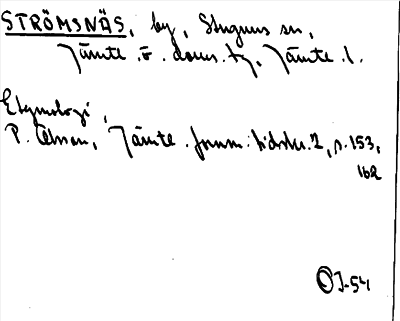 STRÖMSNÄS, by, Stuguns sn,
Jämte. ö. doms. tg, Jämtl. l.
Etymologi,
P. Olsson, Jämte. fornm. tidskr. 2, s. 153,
162
OJ-54